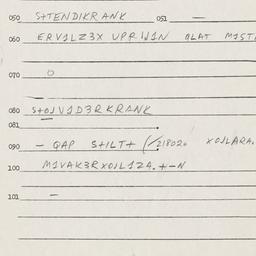 050 S+TENDIKRANK 051 —
060 ERV1LZ3X UPRIN1N QLAT M1ST
070 0
080 S+OJV1D3RKRANK
081
090 — GAP S+ILT+ (218020 XOJLARA.
100 M1VAK3RXOJL1Z4.+-N
101 —